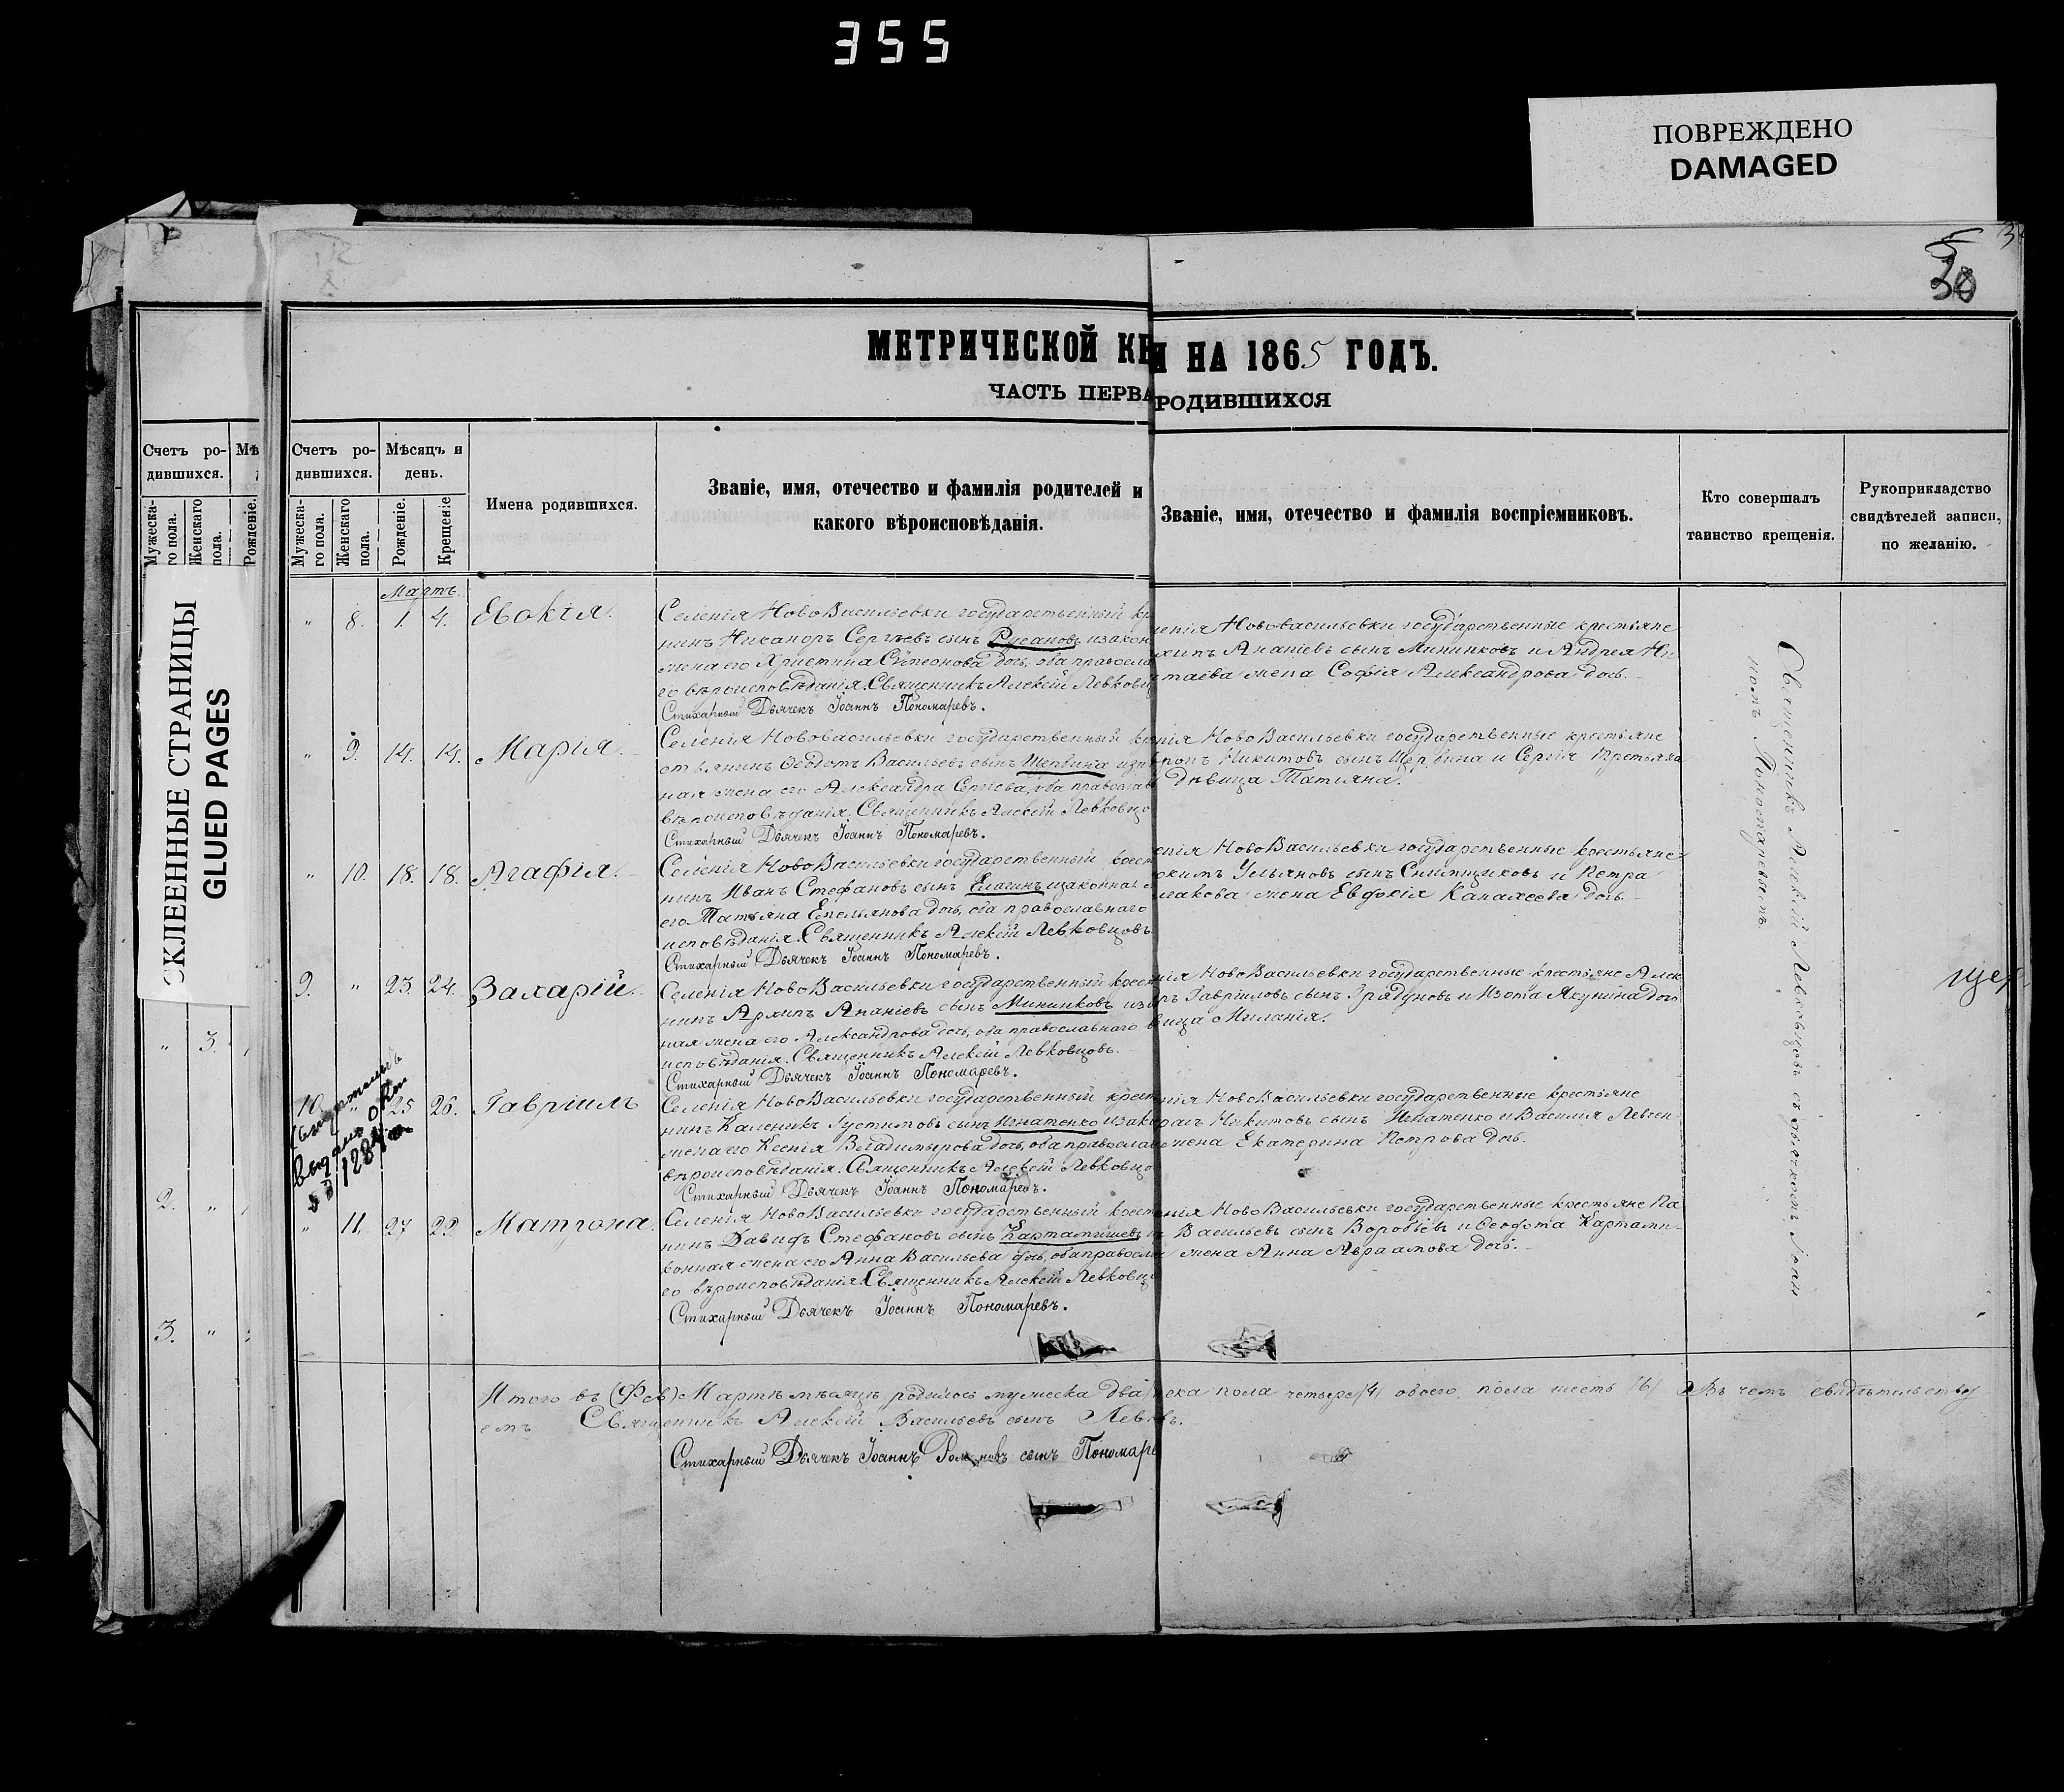 355
ПОВРЕЖДЕНО
DAMAGED
38
МЕТРИЧЕСКОЙ КН И НА 1865 ГОДЪ.
ЧАСТЬ ПЕРВА РОДИВШИХСЯ
Счетъ ро-
дившихся.
Мужеска-
го пола.
Женскаго
пола.
Рожденіе.
СКЛЕЕННЫЕ СТРАНИЦЫ
GLUED PAGES
" 3.
2. "
3. "
Счетъ ро-
дившихся.
Мужеска-
го пола.
Женскаго
пола.
Мѣсяцъ и
день.
Рожденіе.
Крещеніе
Имена родившихся.
Званіе, имя, отечество и фамилія родителей и
какого вѣроисповѣданія.
Званіе, имя, отечество и фамилія воспріемниковъ.
Кто совершалъ
таинство крещенія.
Рукоприкладство
свидѣтелей записи,
по желанію.
Мартъ
" 8. 1. 4. Евокія.
Селенія НовоВасильевки государственный кр
нинъ Никаноръ Сергѣевъ сынъ Русановъ изакон
жена его Христина Симеонова дочь, оба правосла
го вѣроисповѣданія. Священникъ Алексій Левковц
Стихарный Дьячекъ Іоаннъ Пономаревъ.
енія Нововасильевки государственные крестьяне
хипъ Ананіевъ сынъ Мининковъ и Андрея Ни
таева жена Софія Александрова дочь.
" 9. 14. 14. Марія.
Селенія Нововасильевки государственный кре
стьянинъ Ѳеодотъ Васильевъ сынъ Щербина
ная жена его Александра Сергіева, оба правослаѣ
вѣроисповѣданія. Священникъ Алексій Левковцо
Стихарный Дьячекъ Іоаннъ Пономаревъ.
нія НовоВасильевки государственные крестьяне
Никитовъ сынъ Щербина и Сергія Третьяка
дѣвица Татіяна.
" 10. 18. 18. Агафія.
Селенія НовоВасильевки государственный крест
нинъ Иванъ Стефановъ сынъ Елагинъ изаконная
его Татьяна Емельянова дочь, оба православнаго
исповѣданія. Священникъ Алексій Левковцовъ
Стихарный Дьячекъ Іоаннъ Пономаревъ.
енія НовоВасильевки государственные крестьяне
кимъ Ульяновъ сынъ и Петра
лакова жена Евдокія дочь.
9. " 23. 24. Захарій.
Селенія НовоВасильевки государственный крес
нинъ Архипъ Ананіевъ сынъ Мининковъ
ная жена его Александрова дочь, оба православнаго
исповѣданія. Священникъ Алексій Левковцовъ.
Стихарный Дьячекъ Іоаннъ Пономаревъ.
нія НовоВасильевки государственные крестьяне Алек
Гавріиловъ сынъ Грядуновъ и Изота Якунина дочь
вица Миланія.
10. " 25 26. Гавріилъ
Селенія НовоВасильевки государственный крест
нинъ Каленикъ Іустимовъ сынъ Игнатенко изако
жена его Ксенія Владимырова дочь, оба правосла
вѣроисповѣданія. Священникъ Алексій Левковцо
Стихарный Дьячекъ Іоаннъ Пономаревъ.
нія НовоВасильевки государственные крестьяне
Никитовъ сынъ Игнатенко и Василія Левчен
жена Екатерина Петрова дочь.
" 11. 27 29. Матрона.
Селенія НовоВасильевки государственный крест
нинъ Давидъ Стефановъ сынъ Картамышевъ
конная жена его Анна Васильева дочь, оба правосла
го вѣроисповѣданія. Священникъ Алексій Левковц
Стихарный Дьячекъ Іоаннъ Пономаревъ.
енія НовоВасильевки государственные крестьяне Па
Васильевъ сынъ Воробіевъ и Ѳеодота Картами
жена Анна Авраамова дочь.
Священникъ Алексій Левковцовъ съ дьячкомъ Іоан
номъ Пономаревымъ.
щер
Итого въ (Фев) Мартѣ мѣсяцѣ родилось мужеска два ска пола четыре (4) обоего пола шесть (6) Въ чемъ свидѣтельству
емъ Священникъ Алексій Васильевъ сынъ Левк въ.
Стихарный Дьячекъ Іоаннъ Романовъ сынъ Пономаре